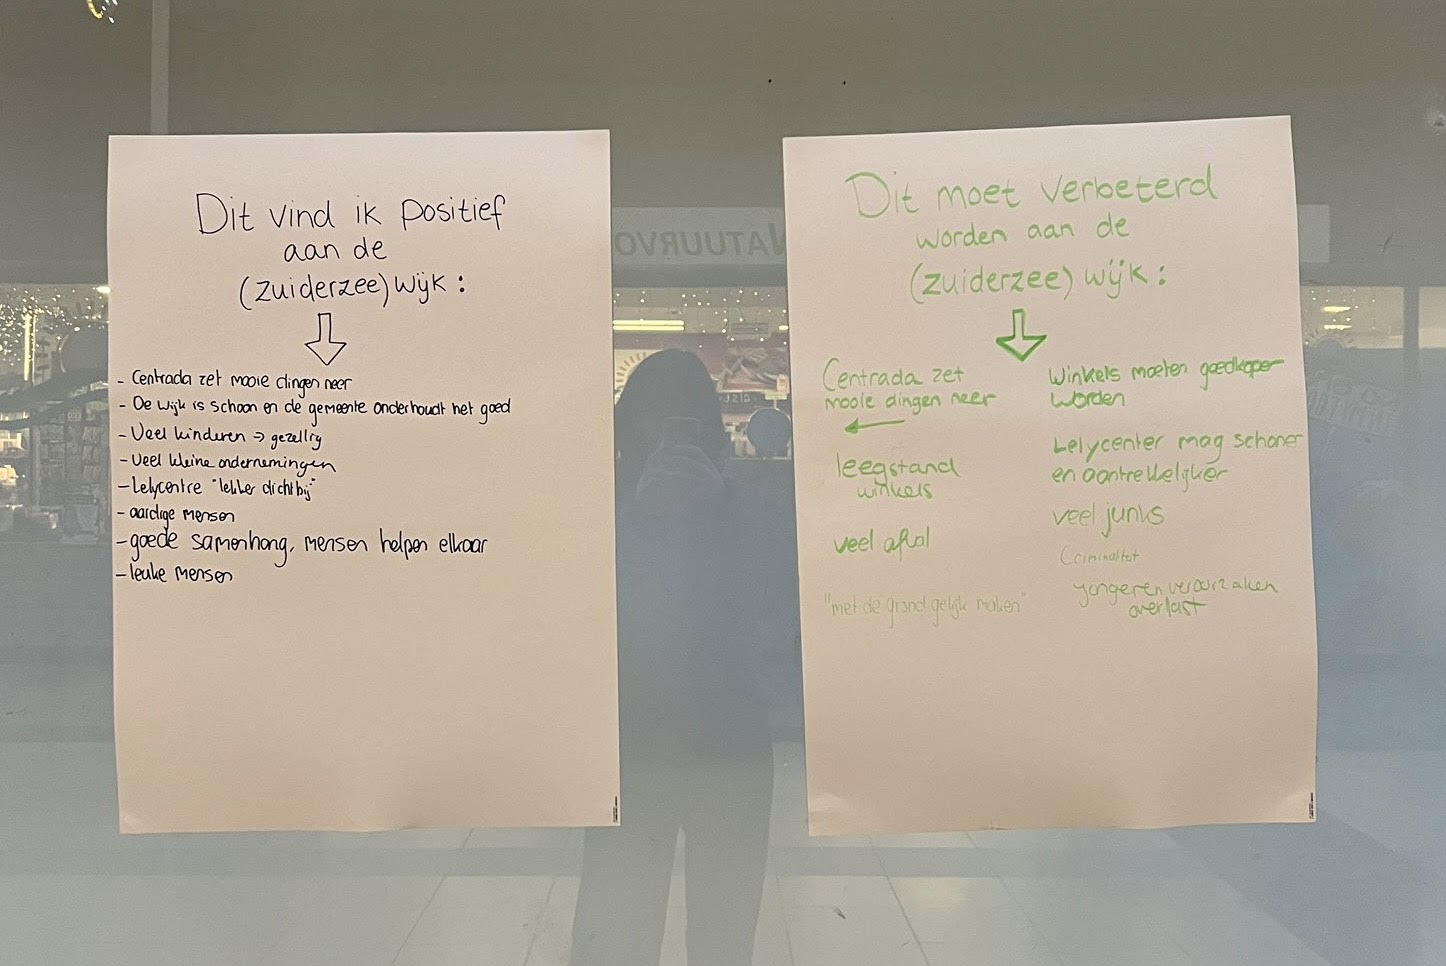 Dit vind ik positief
aan de
(zuiderzee) wijk :
- Centrada zet mooie dingen neer
- De wijk is schoon en de gemeente onderhoudt het goed
- Veel kinderen => gezellig
- Veel kleine ondernemingen
- Lelycentre "lekker dichtbij"
- aardige mensen
- goede samenhang, mensen helpen elkaar
- leuke mensen
NATUURVO
Dit moet verbeterd
worden aan de
(zuiderzee) wijk :
Centrada zet
mooie dingen neer
leegstand
winkels
veel afval
"met de grond gelijk maken"
Winkels moeten goedkoper
worden
Lelycenter mag schoner
en aantrekkelijker
veel junks
Criminaliteit
jongeren veroorzaken
overlast